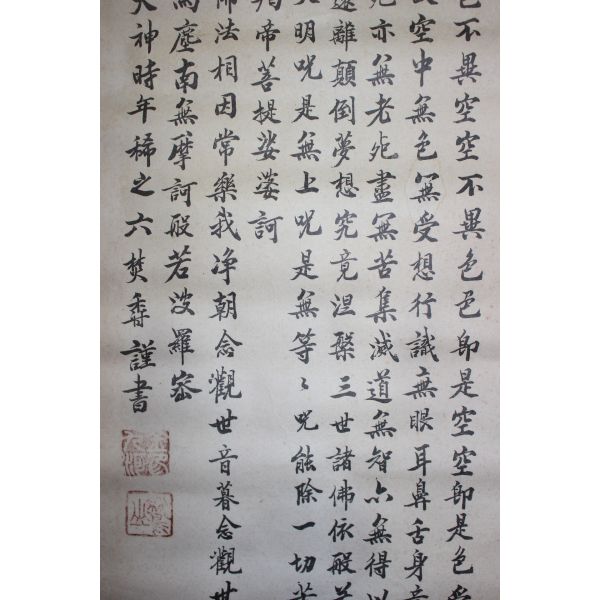 色不異空空不異色色即是空空即是色受
空中無色無受想行識無眼耳鼻舌身意
死亦無老死盡無苦集滅道無智亦無得以
遠離顛倒夢想究竟涅槃三世諸佛依般若
大明呪是無上呪是無等〻呪能除一切苦
羯帝菩提娑婆訶
佛法相因常樂我净朝念觀世音暮念觀世
南無摩訶般若波羅密
天神時年稀之六樊彝謹書